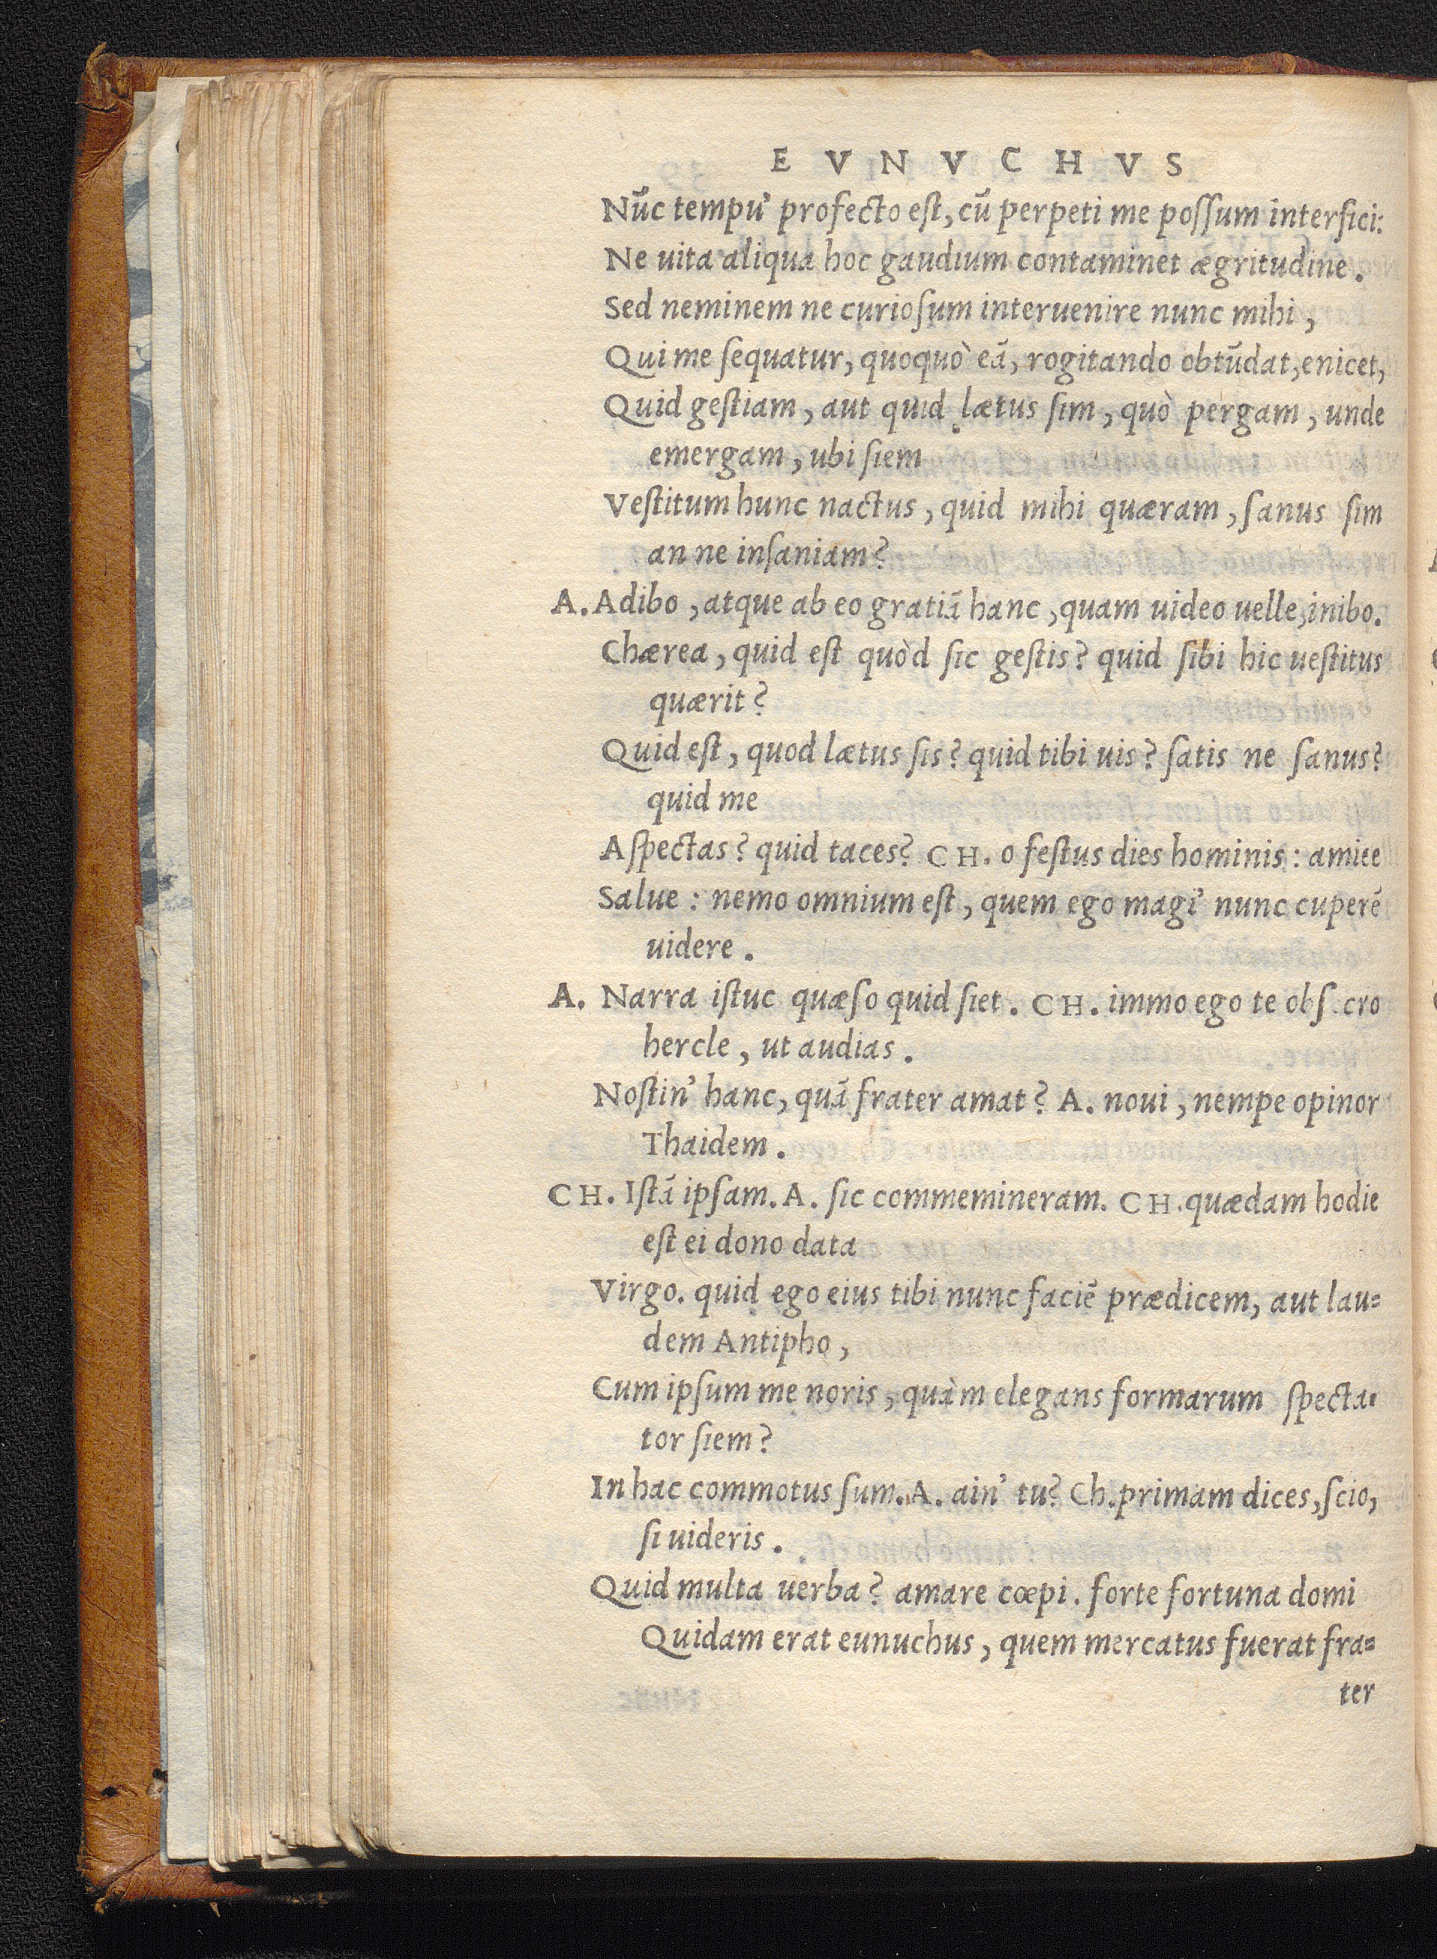 EVNVCHVS
Nūc tempu' profecto est, cū perpeti me possum interfici:
Ne uita aliqua hoc gaudium contaminet ægritudine.
Sed neminem ne curiosum interuenire nunc mihi,
Qui me sequatur, quoquò eā, rogitando obtūdat, enicet,
Quid gestiam, aut quid lætus sim, quò pergam, unde
emergam, ubi siem
Vestitum hunc nactus, quid mihi quæram, sanus sim
an ne insaniam?
A. Adibo, atque ab eo gratiā hanc, quam uideo uelle, inibo.
Chærea, quid est quòd sic gestis? quid sibi hic uestitus
quærit?
Quid est, quod lætus sis? quid tibi uis? satis ne sanus?
quid me
Aspectas? quid taces? CH. o festus dies hominis: amice
Salue: nemo omnium est, quem ego magi' nunc cuperē
uidere.
A. Narra istuc quæso quid siet. CH. immo ego te obs cro
hercle, ut audias.
Nostin' hanc, quā frater amat? A. noui, nempe opinor
Thaidem.
CH. Istā ipsam. A. sic commemineram. CH. quædam hodie
est ei dono data
Virgo. quid ego eius tibi nunc faciē prædicem, aut lau=
dem Antipho,
Cum ipsum me noris, quàm elegans formarum specta-
tor siem?
In hac commotus sum. A. ain' tu? Ch. primam dices, scio,
si uideris.
Quid multa uerba? amare cœpi. forte fortuna domi
Quidam erat eunuchus, quem mercatus fuerat fra=
ter